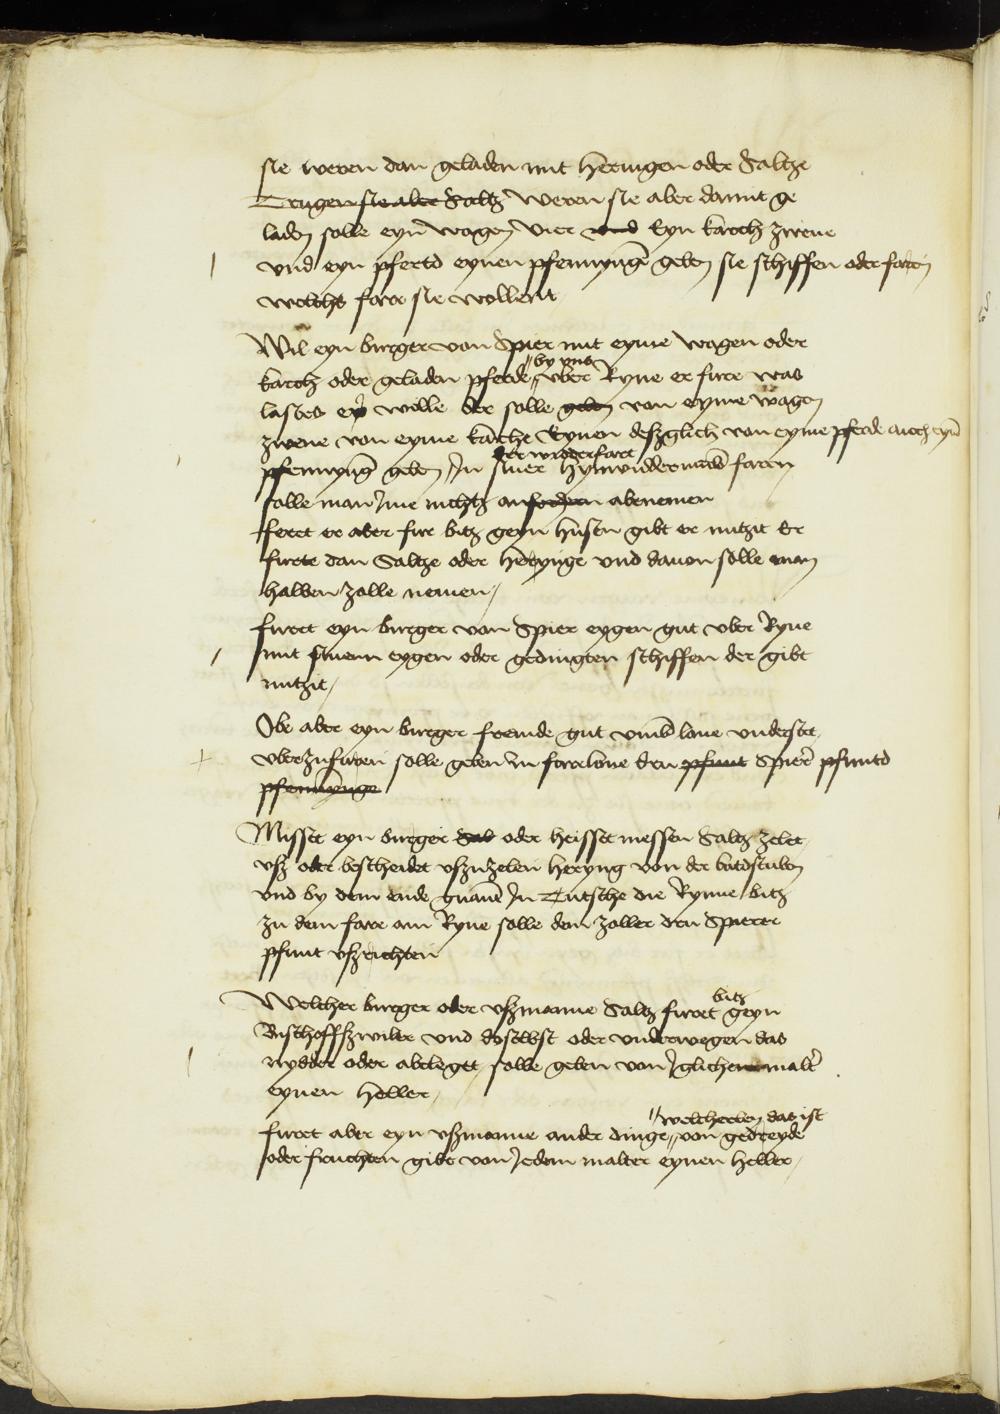 sie weren dan geladen mit heringen oder Saltze
Trugen sie aber Saltz weren sie aber damit ge
laden solle eyn wagen vier und Eyn karch zwene
vnd eyn pfertd eynen pfennyng geben sie schiffen oder faren
welchs fare sie wollent
Wil eyn burger von Spier mit eyme wagen oder
by vns
karch oder geladen pferde vber Ryne er fure was
lastes er wille der solle geben von eyme wagen
zwene von eyme karche Eynen deszglich von eyme pferde auch eyn
der widderfart
pfennyng geben In siner hynwidder faren
solle man Ime nichtz anfordern abenemen
feret er aber fur bitz geyn husen gibt er nutzit Er
furete dan Saltze oder herynge vnd dauon solle man
halben zolle nemen
furet eyn burger von Spier eygen gut vber Ryne
mit sinem eygen oder gedingten schiffen der gibt
nutzit
Obe aber eyn burger fremde gut vmb lone understet
vberzufuren solle geben den pfunt Spirer pfuntd
pfennynge
Misset eyn burger Sal oder heisset messen Saltz zelet
vsz oder bescheidet vszuzelen heryng von der
vnd by dem ende In Tutsche die Rynne bitz
zu dem fare am Ryne solle dem zoller den Spierer
pfunt vszrichten
bitz
Welcher burger oder vszmanne Saltz furet geyn
Bischoffszwiler vnd doselbst oder vnderwegen das
nydder oder ableget solle geben von Iglichem malter
eynen heller
welcherley das ist
furet aber eyn vszmanne ander dinge von gedreyde
oder fruchten gibt von Iedem malter eynen heller